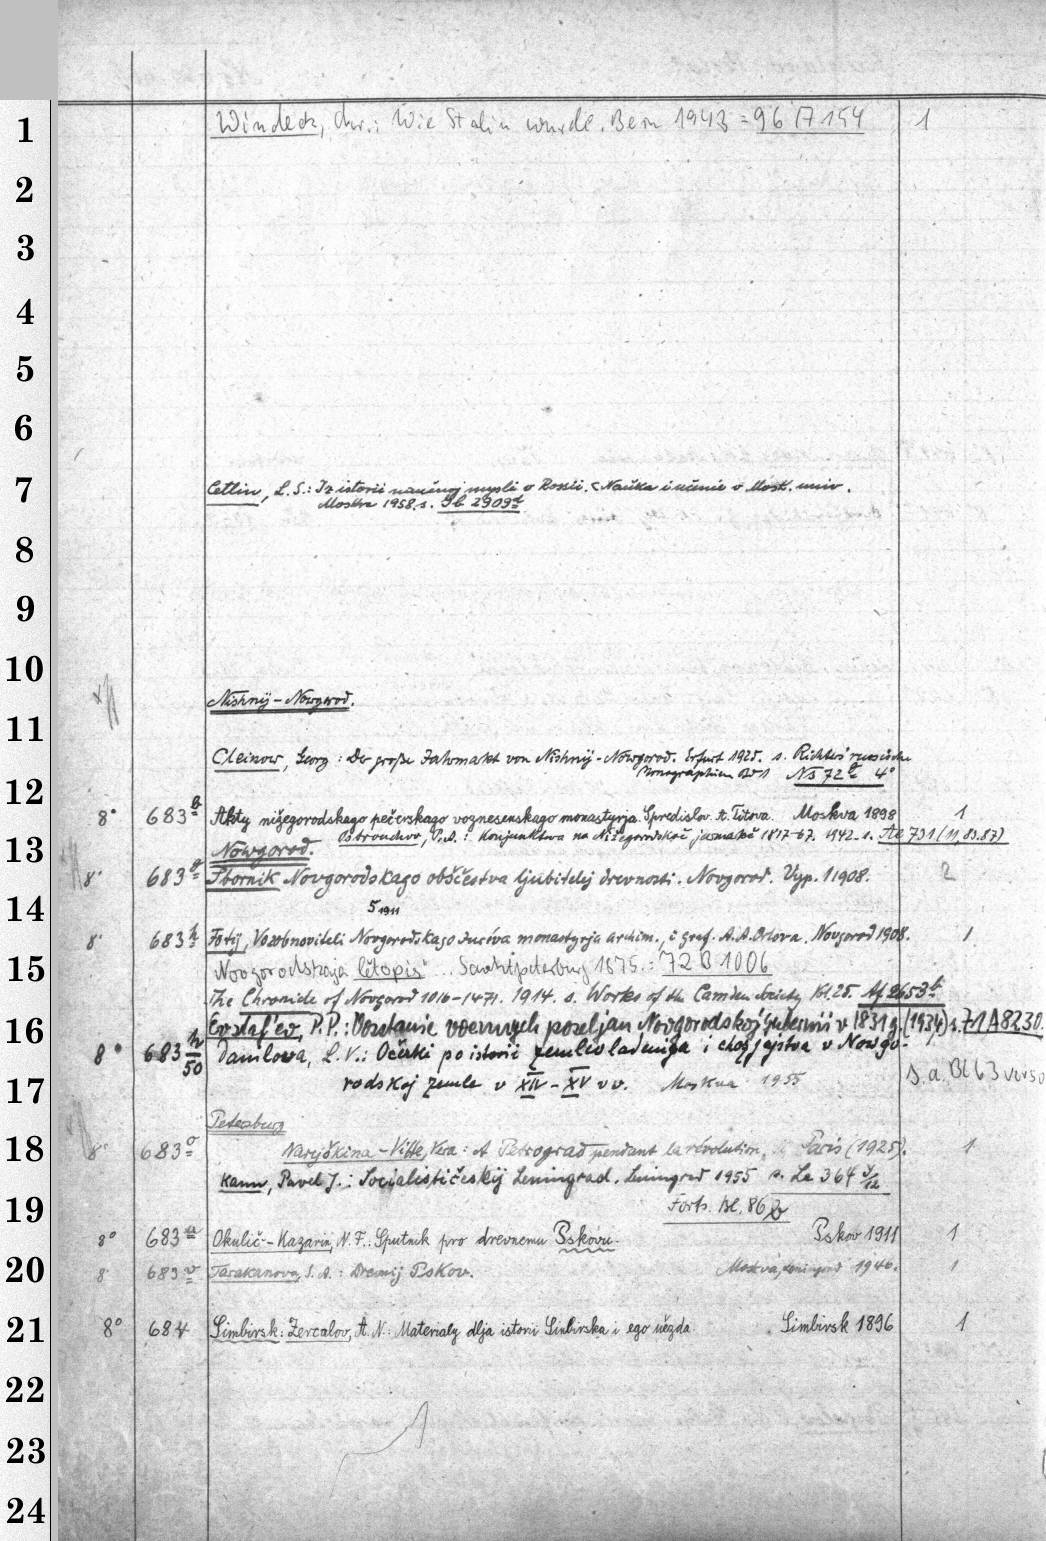 1 Windeck, Chr.: Wie Stalin wurde. Bern 1943 = 96 I 7154 1
2
3
4
5
6
7 Cetlin, L.S.: Iz istorii naučnoj mysli v Rossii. < Nauka i učenie v Mosk. univ.
Moskva 1958. s. Jb 2909
8
9
10
Nishnij-Nowgorod.
11
Cleinow, Georg: Der große Jahrmarkt von Nishnij-Nowgorod. Erfurt 1925. s. Richters russische
Monographien Bd 1 Ns 72 4°
12
8° 683 Akty nižegorodskago pečerskago voznesenskago monastyrja. S predislov. A. Titova. Moskva 1898 1
P.A.: Konjunktura na Nižegorodskoč jarmarke 1817-67. 1942. s. Ac 731 (11, 83.87)
13 Nowgorod.
8° 683 Sbornik Novgorodskago obščestva ljubitelej drevnosti. Novgorod. Vyp. 1 1908. 2
14 5 1911
8° 683 h Fotij, Vozobnoviteli Novgorodskago Jur'eva monastyrja archim., i graf. A.A. Orlova. Novgorod 1908. 1
15 Novgorodskaja lětopis' ... Sanktpeterburg 1875.: 72 B 1006
The Chronicle of Novgorod 1016-1471. 1914. s. Works of the Camden Society Vol. 25. Af 2653
16 Evstaf'ev, P.P.: Vosstanie voennych poseljan Novgorodskoj gubernii v 1831 g. (1934) s. 71 A 8230.
8° 683 h/50 Danilova, L.V.: Očerki po istorii zemlevladenija i chozjajstva v Novgo-
17 rodskoj zemle v XIV-XV vv. Moskva 1955 s.a. Bl 63 verso
Petersburg
18 8° 683 o Naryškina-Vitte, Vera: A Petrograd pendant la révolution. Paris (1925). 1
Kann, Pavel J.: Socialističeskij Leningrad. Leningrad 1955 s. La 364 /12
19 Forts. Bl. 86
8° 683 u Okulič-Kazarin, N.F.: Sputnik po drevnemu Pskovu. Pskov 1911 1
20 8° 683 v Tarakanova, S.A.: Drevnij Pskov. Moskva, Leningrad 1946. 1
21 8° 684 Simbirsk: Zercalov, A.N.: Materialy dlja istorii Sinbirska i ego uězda. Simbirsk 1896 1
22
23
24